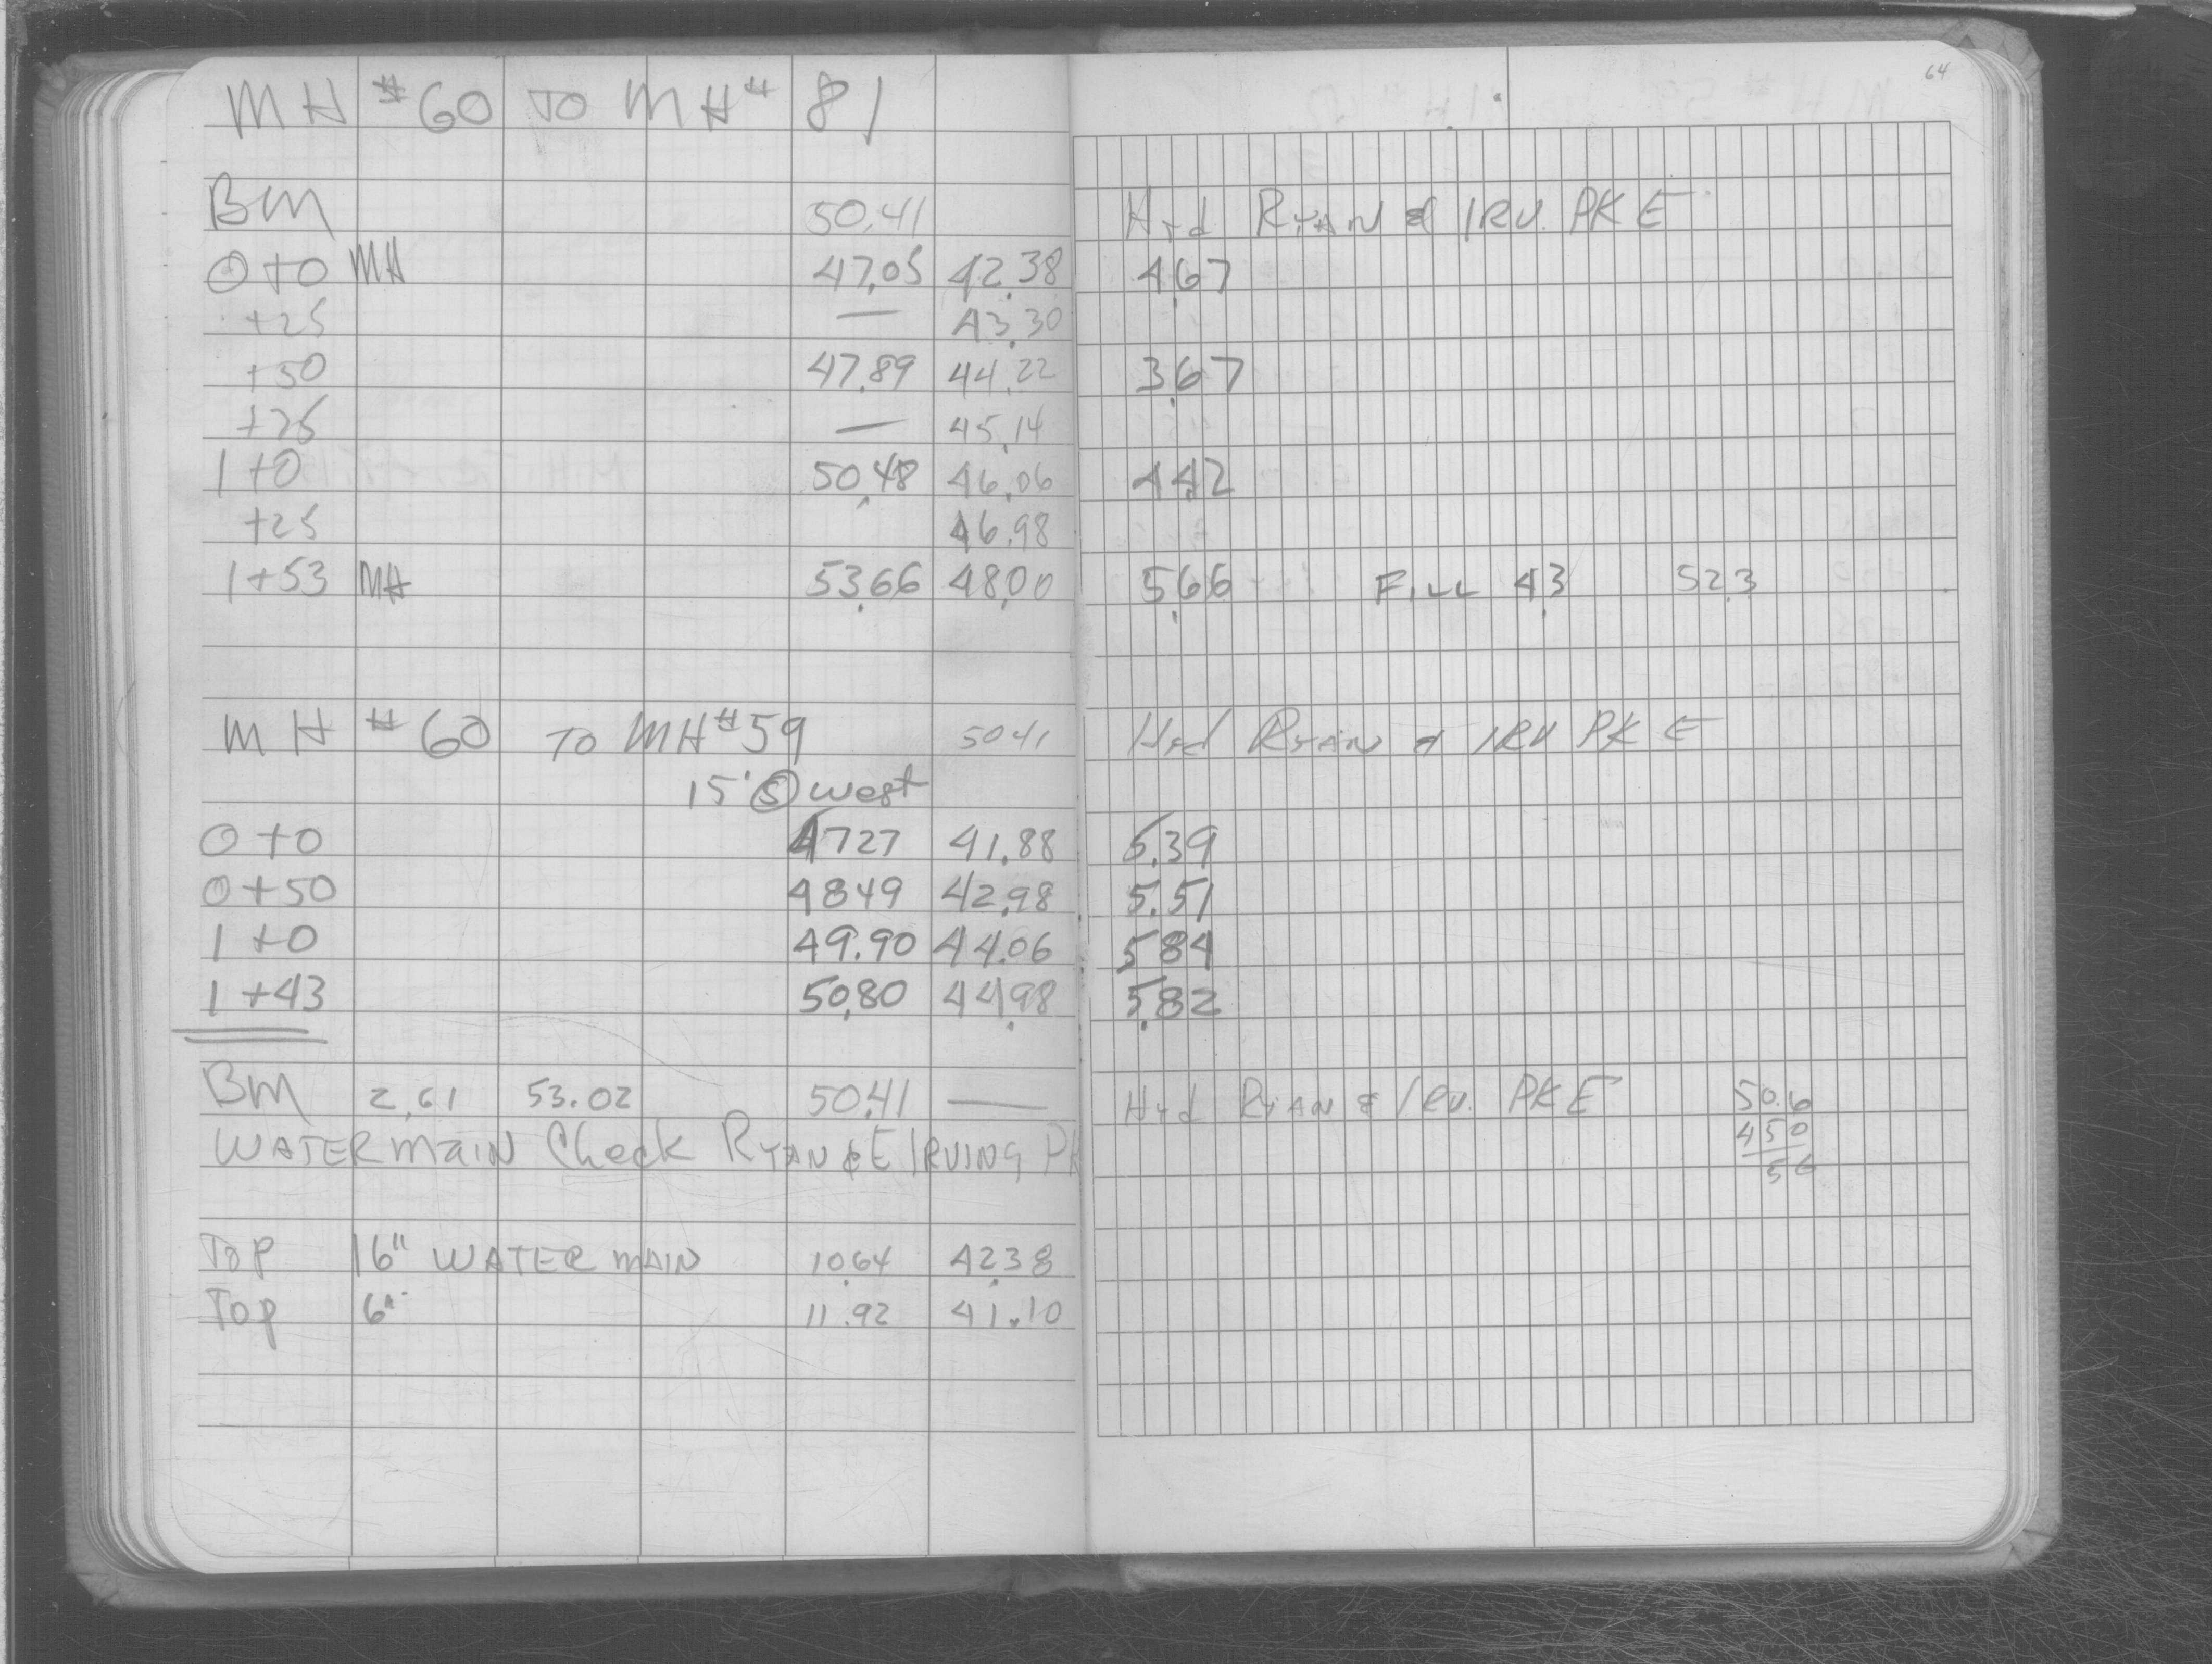 64
MH #60 TO MH# 81
BM 50.41 Hyd RYAN & IRV. PK E
0+0 MH 47.05 42.38 4.67
+25 — 43.30
+50 47.89 44.22 3.67
+75 — 45.14
1+0 50.48 46.06 4.42
+25 46.98
1+53 MH 53.66 48.00 5.66 FILL 4.3 52.3
MH #60 TO MH#59 5041 Hyd RYAN & IRV PK E
15' S west
0+0 4727 41.88 5.39
0+50 4849 42.98 5.51
1+0 49.90 44.06 584
1+43 50.80 44.98 5.82
BM 2.61 53.02 50.41 — Hyd RYAN & IRV. PK E 50.6
450
56
WATER MAIN Check RYAN & E IRVING PK
TOP 16" WATER MAIN 10.64 42.38
Top 6" 11.92 41.10